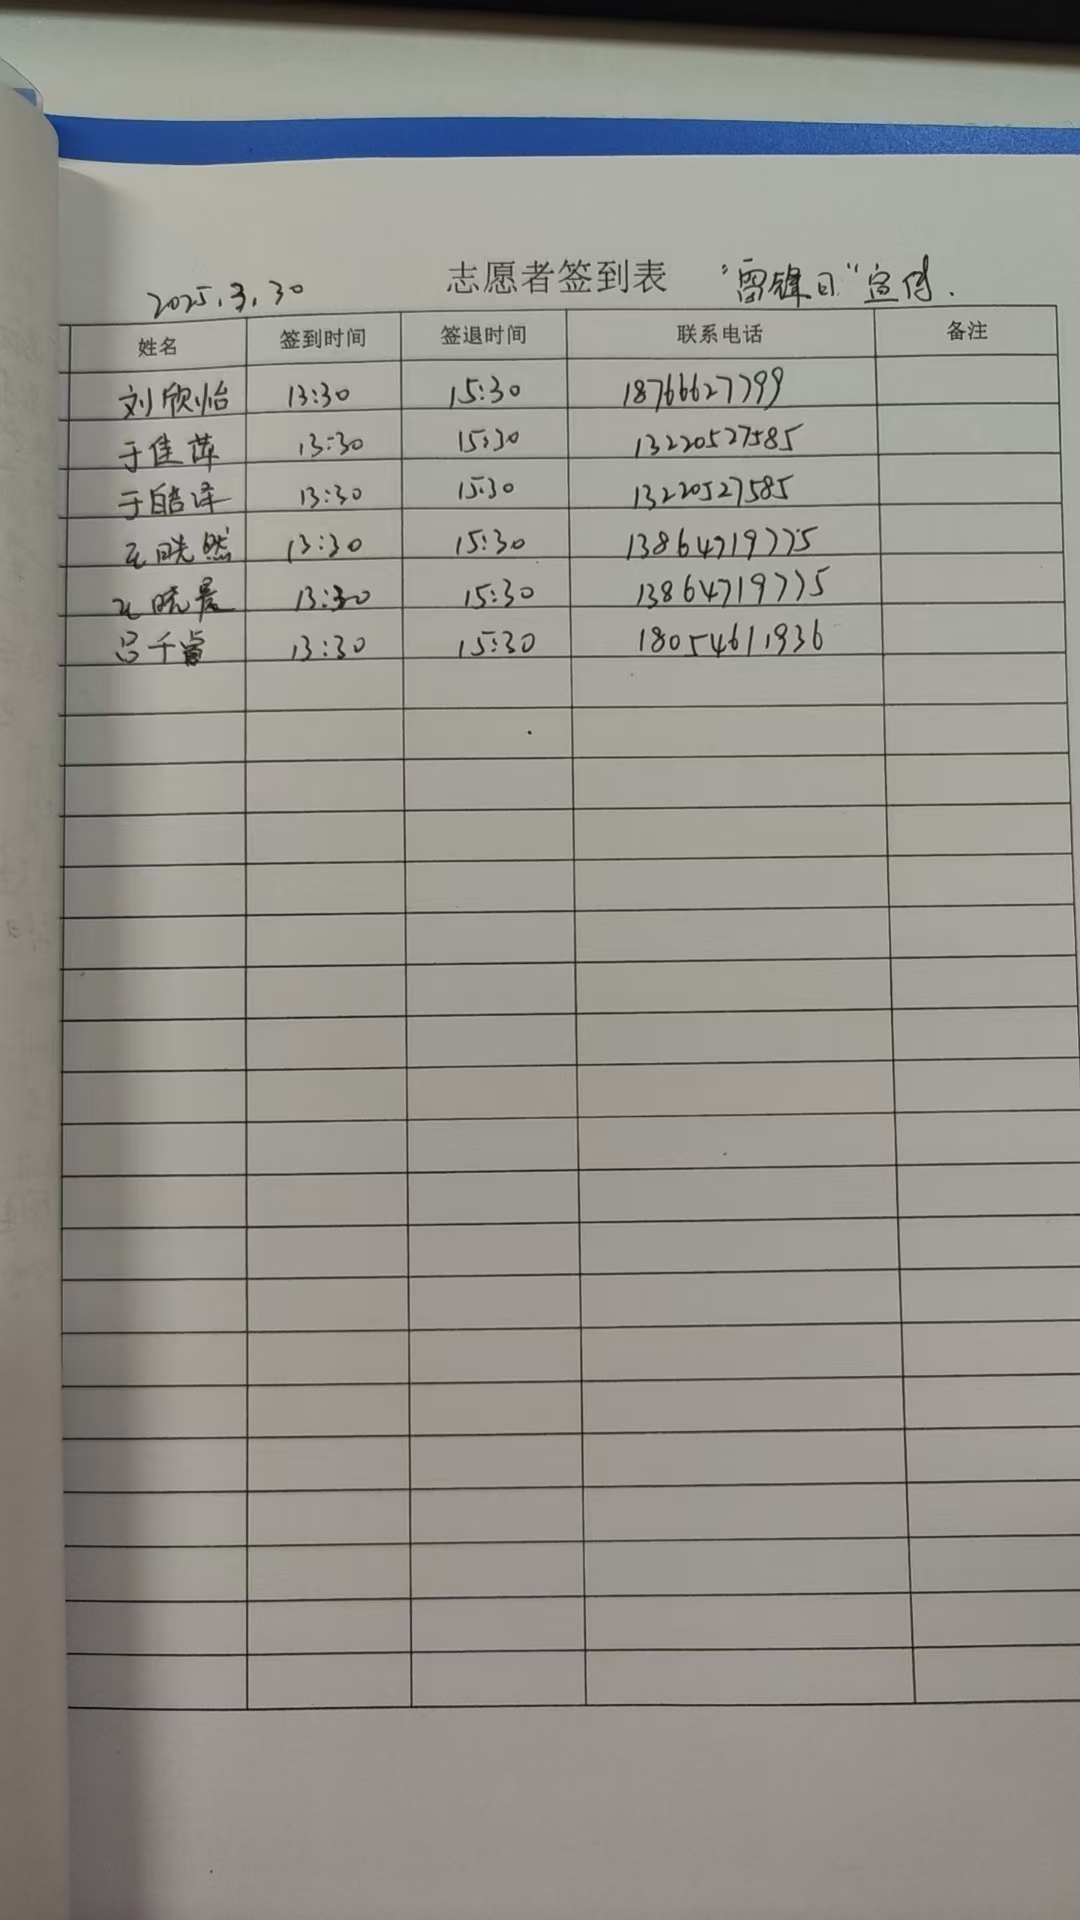 志愿者签到表 "雷锋日"宣传.
2025.3.30
姓名 签到时间 签退时间 联系电话 备注
刘欣怡 13:30 15:30 18766627799
于佳萍 13:30 15:30 13220527585
于皓泽 13:30 15:30 13220527585
晄然 13:30 15:30 13864719775
晓晨 13:30 15:30 13864719775
吕千睿 13:30 15:30 18054611936